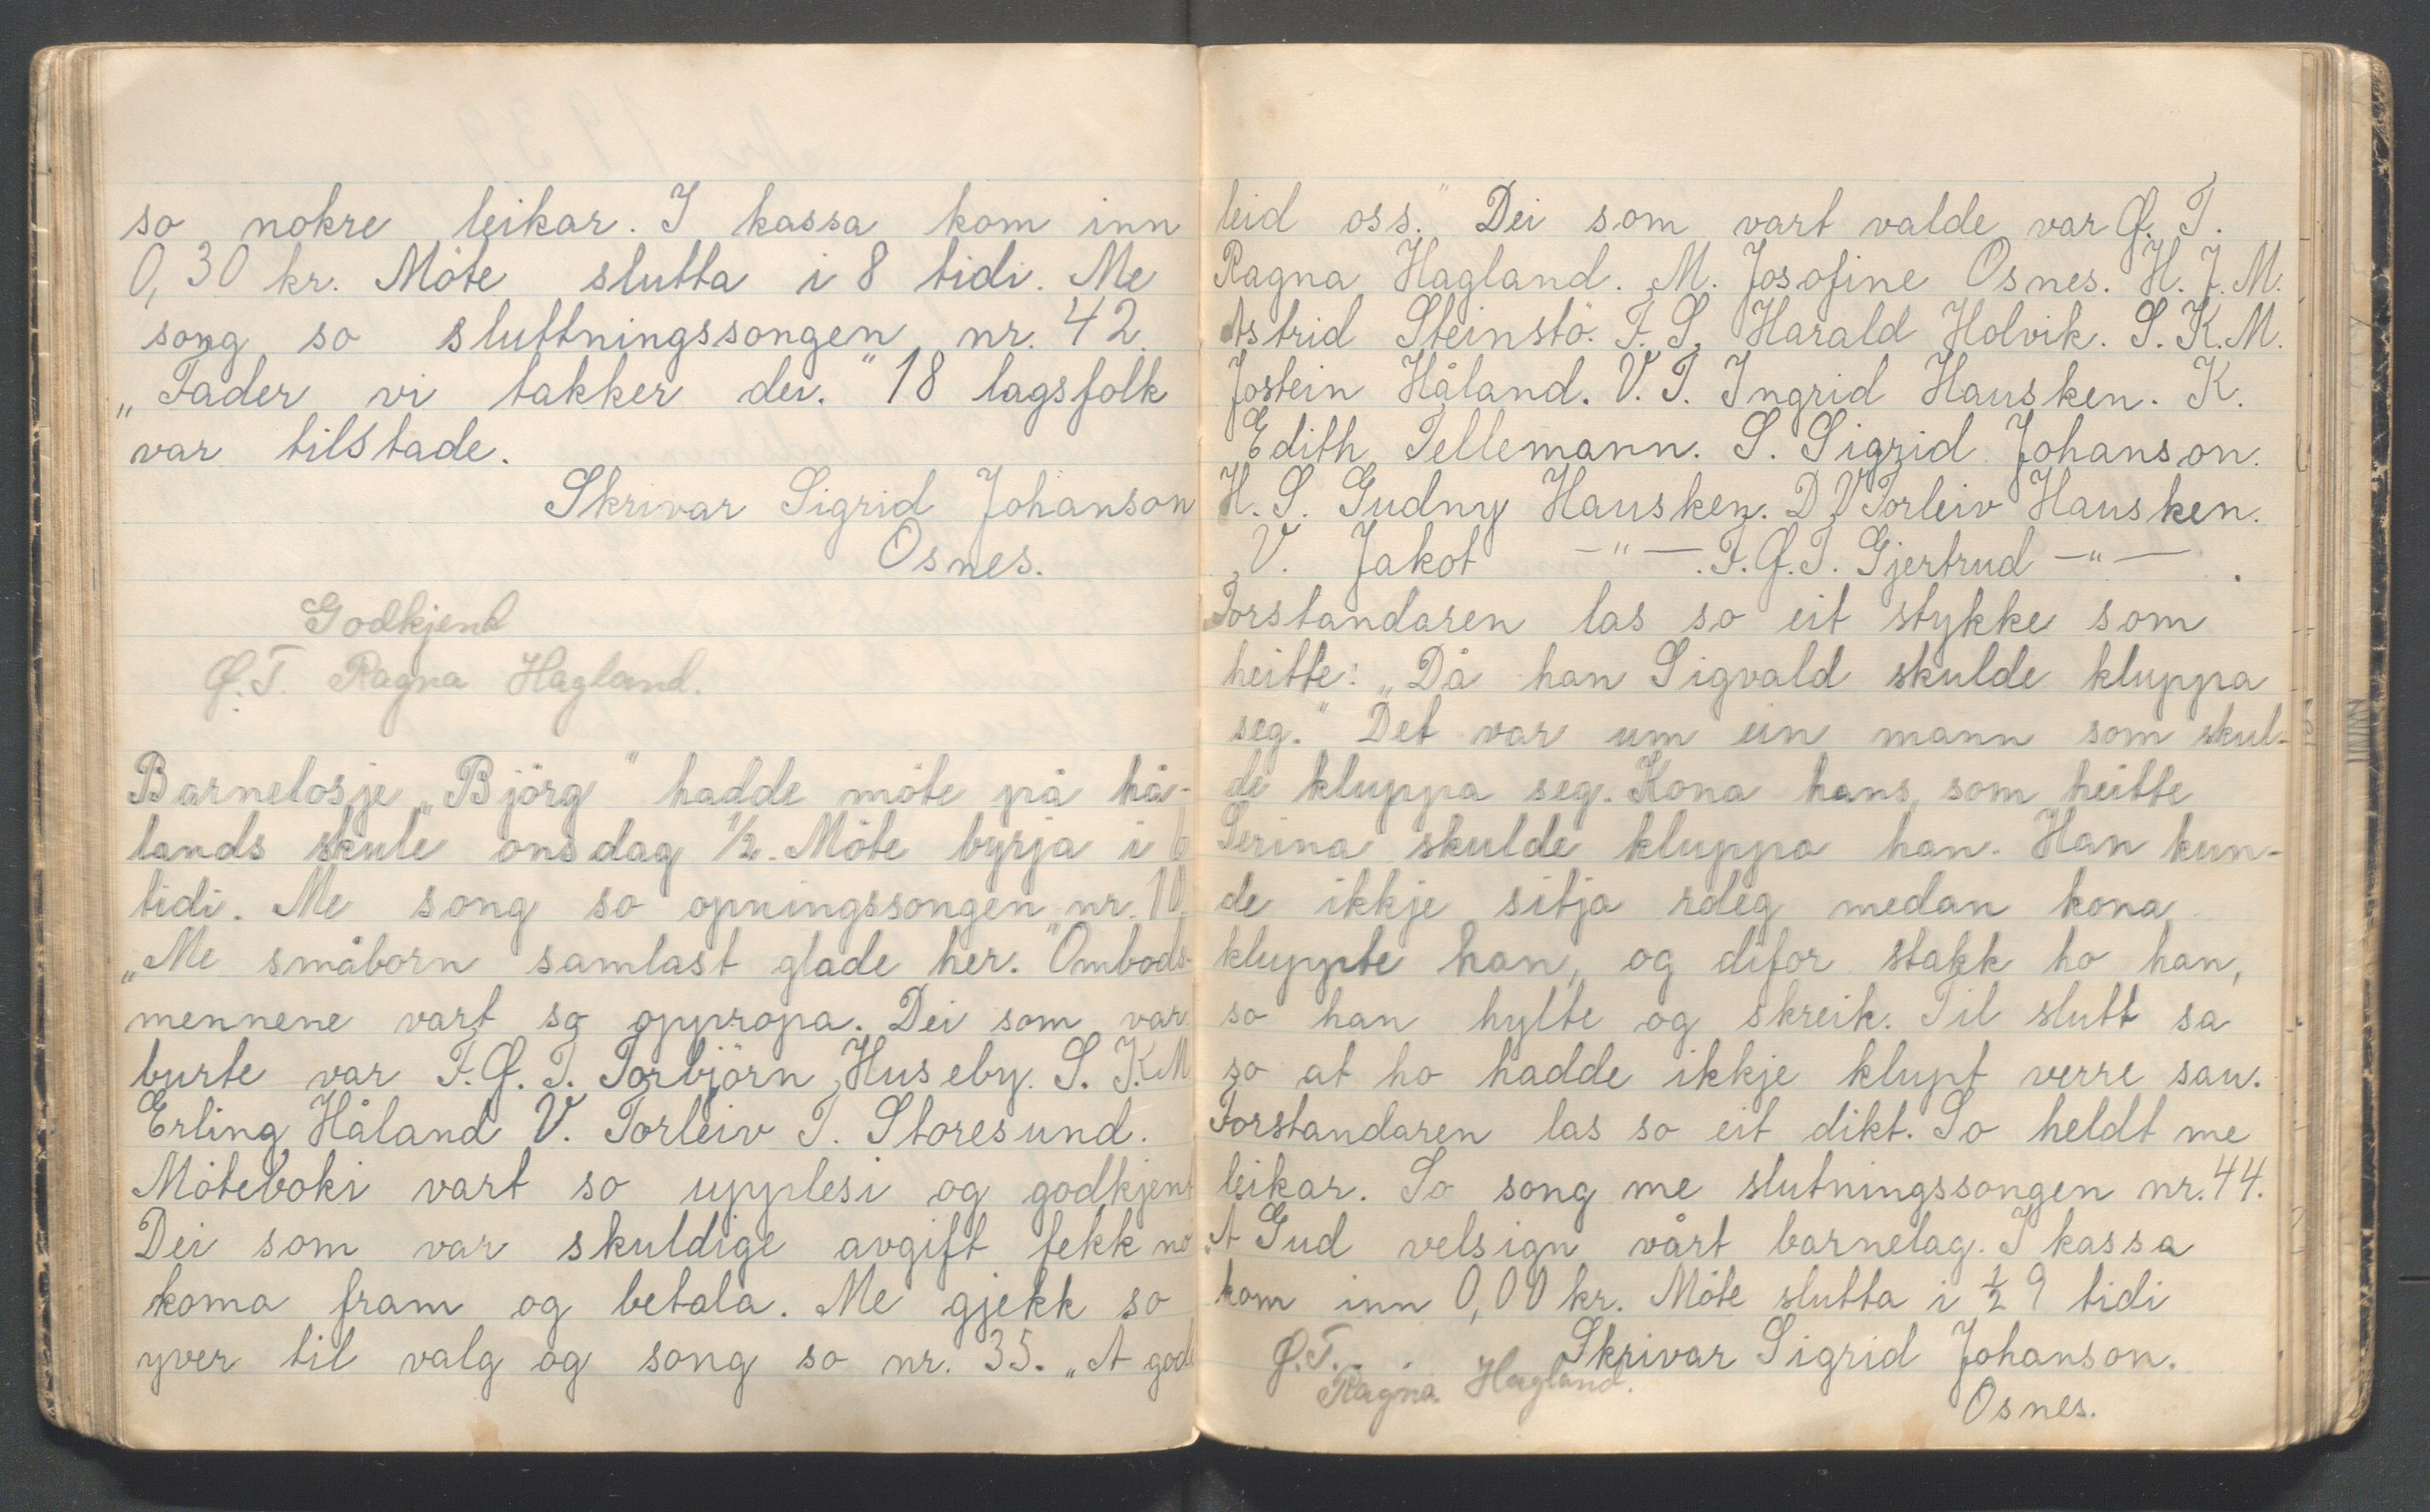 so nokre leikar. I kassa kom inn
0,30 kr. Möte slutta i 8 tidi. Me
song so sluttningssongen nr. 42.
„Fader vi takker dei." 18 lagsfolk
var tilstade.
Skrivar Sigrid Johanson
Osnes.
Godkjend
Ø.T. Ragna Hagland.
Barnelosje „Björg" hadde möte på hå-
lands skule onsdag 1/2. Möte byrja i 6
tidi. Me song so opningssongen nr. 10.
„Me småborn samlast glade her." Ombods-
mennene vart so oppropa. Dei som var
burte var F.Ø.T. Torbjörn Huseby. S.K.M
Erling Håland V. Torleiv T. Storesund.
Möteboki vart so upplesi og godkjent
Dei som var skuldige avgift fekk no
koma fram og betala. Me gjekk so
yver til valg og song so nr. 35. „A gode
leid oss." Dei som vart valde var Ø.T.
Ragna Hagland. M. Josofine Osnes. H.J.M.
Astrid Steinstö. F.S. Harald Holvik. S.K.M.
Jostein Håland. V.T. Ingrid Hausken. K.
Edith Tellemann. S. Sigrid Johanson.
H.S. Gudny Hausken. D V Torleiv Hausken.
V. Jakot —"—. F.Ø.T. Gjertrud —"— .
Forstandaren las so eit stykke som
heitte: „Då han Sigvald skulde kluppa
seg." Det var um ein mann som skul-
de kluppa seg. Kona hans, som heitte
Serina skulde kluppa han. Han kun-
de ikkje sitja rdeg medan kona
kluppte han, og difor stakk ho han,
so han hylte og skreik. Til slutt sa
so at ho hadde ikkje klupt verre sau.
Forstandaren las so eit dikt. So heldt me
leikar. So song me slutningssongen nr. 44.
„A Gud velsign vårt barnelag. I kassa
kom inn 0,00 kr. Möte slutta i ½ 9 tidi
Ø.T. Skrivar Sigrid Johanson.
Ragna Hagland.
Osnes.